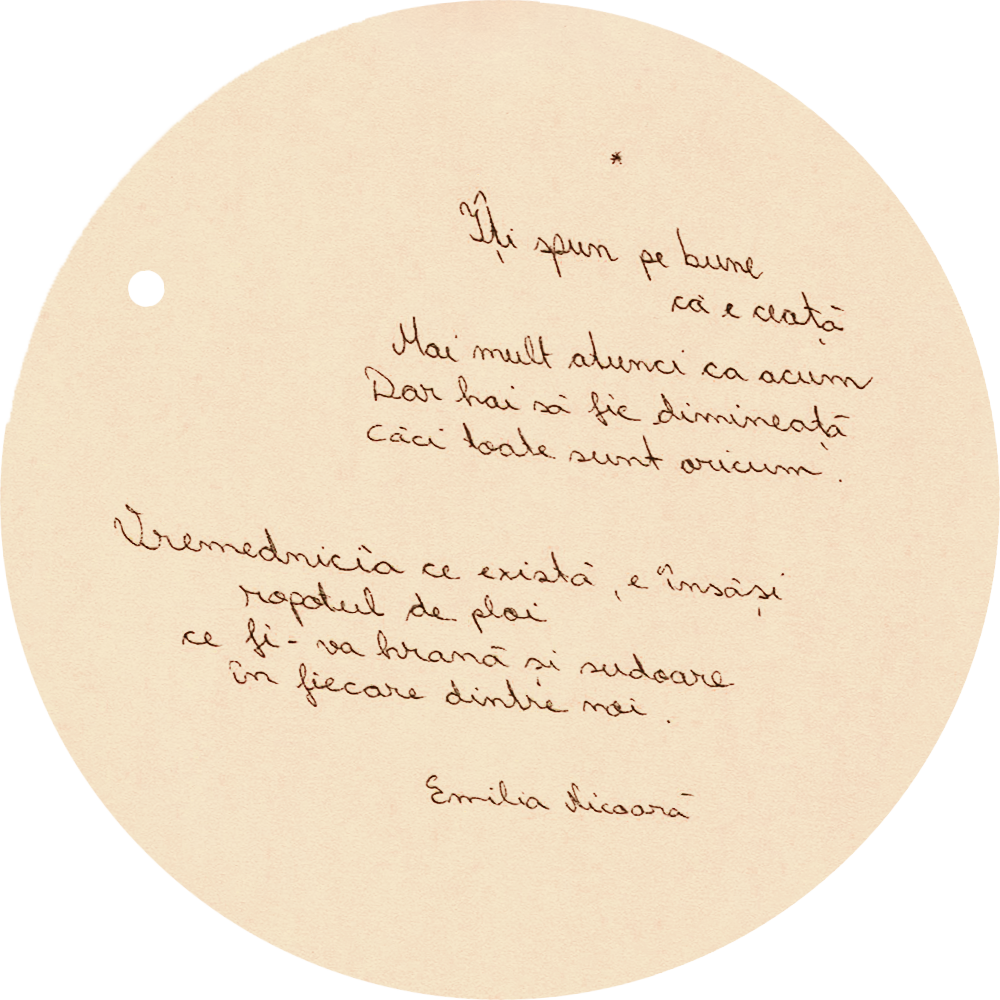 *
Îți spun pe bune
că e ceață
Mai mult atunci ca acum
Dar hai să fie dimineață
căci toate sunt oricum.
Vremednicia ce există, e însăși
ropotul de ploi
ce fi-va hrană și sudoare
în fiecare dintre noi.
Emilia Nicoară